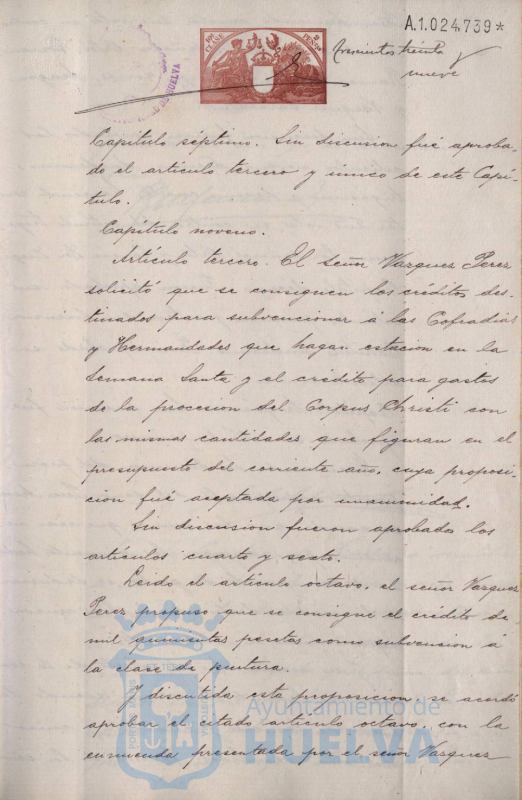 A.1.024,739*
10ª CLASE
2 PESETAS
trescientos treinta y
nueve
DE HUELVA
Capitulo séptimo. Sin discusion fué aproba-
do el articulo tercero y único de este Capi-
tulo.
Capitulo noveno.
Artículo tercero. El señor Vazquez Perez
solicitó que se consignen los créditos des-
tinados para subvencionar á las Cofradias
y Hermandades que hagan estacion en la
Semana Santa y el crédito para gastos
de la procesion del Corpus Christi son
las mismas cantidades que figuran en el
presupuesto del corriente año, cuya proposi-
cion fué aceptada por unanimidad.
Sin discusion fueron aprobados los
artículos cuarto y sexto.
Leido el artículo octavo, el señor Vazquez
Perez propuso que se consigne el crédito de
mil quinientas pesetas como subvencion á
la clase de pintura.
Y discutida esta proposicion, se acordó
aprobar el citado articulo octavo, con la
enmienda presentada por el señor Vazquez
Ayuntamiento de
HUELVA